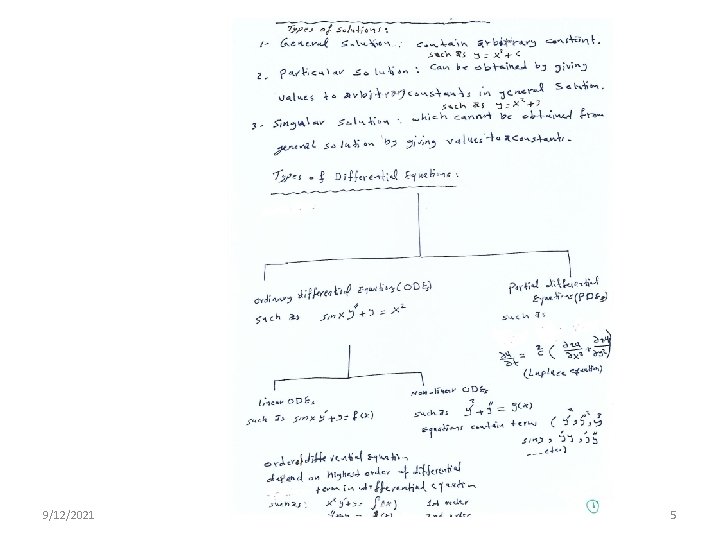 Types of solutions:
1- General Solution: contain arbitrary constant.
such as y = x² + c
2. Particular Solution: Can be obtained by giving
values to arbitrary constants in general Solution.
such as y = x² +
3- Singular Solution: which cannot be obtained from
general solution by giving values to constants.
Types of Differential Equations:
ordinary differential Equation (ODEs)
such as sinx y'' + y = x²
Partial differential
Equations (PDEs)
such as
∂u/∂t = ( ∂²u/∂x² + ∂²u/∂y² )
(Laplace equation)
Linear ODEs
such as sinx y'' + y = f(x)
Non-linear ODEs
such as + y'' = g(x)
equations contain term (
siny,
order of differential Equation
depend on highest order of differential
term in differential equation
such as: f(x) 1st order
f(x) 2nd order
1
9/12/2021
5